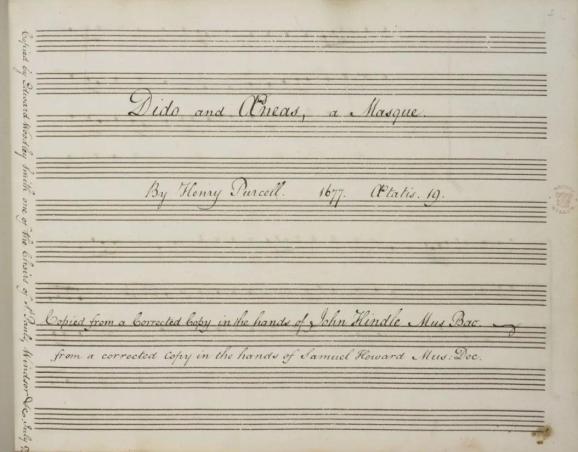 Dido and Æneas, a Masque.
By Henry Purcell. 1677. Ætatis. 19.
Copied from a Corrected Copy in the hands of John Hindle Mus Bac.
from a corrected Copy in the hands of Samuel Howard Mus. Doc.
Copied by Edward Woodley Smith one of the Choirs of St Pauls, Windsor &c, July